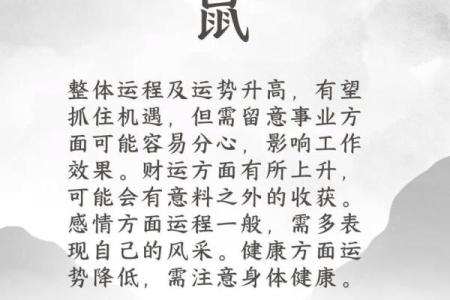 鼠
整体运程及运势升高，有望
抓住机遇，但需留意事业方
面可能容易分心，影响工作
效果。财运方面有所上升，
可能会有意料之外的收获。
感情方面运程一般，需多表
现自己的风采。健康方面运
势降低，需注意身体健康。